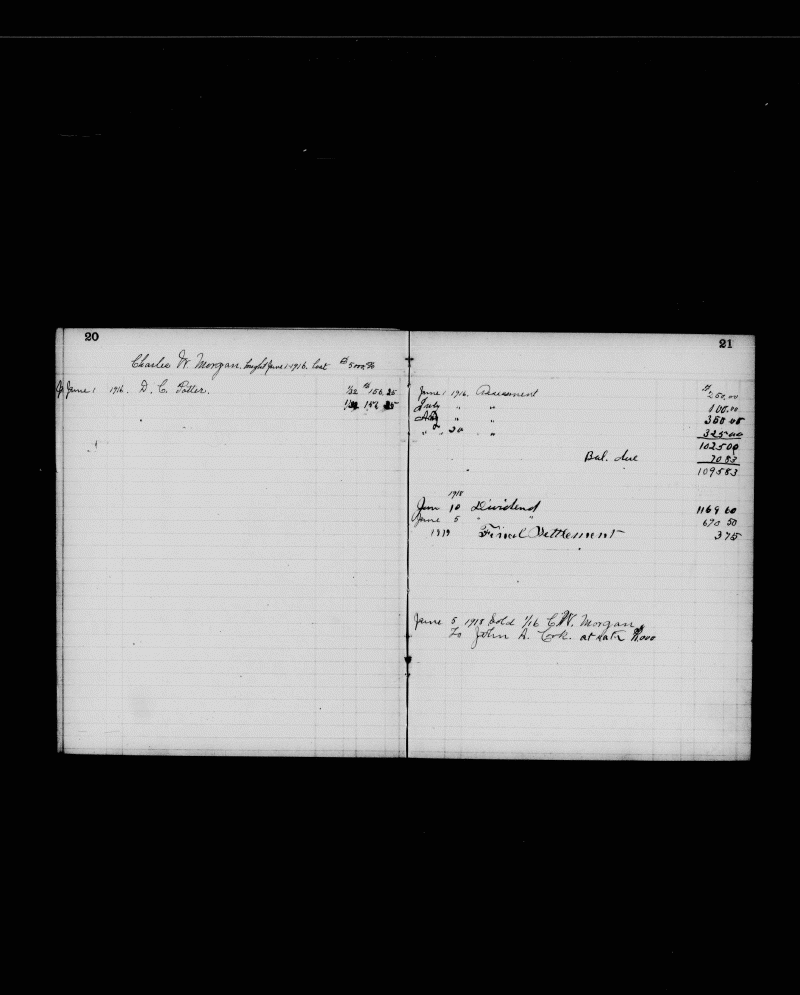 20
Charles W. Morgan. bought June 1-1916. Cost $5000.00
June 1 1916. D. C. Potter. 1/32 $156.25
1/32 156 25
21
June 1 1916. Assessment $250.00
July " " 100.00
Aug " 350 00
" " 20 " 325 00
1025 00
Bal. due 70 83
1095 83
1918
Jan 10 Dividend 1169 60
June 5 " " 670 50
1919 Final Settlement 3 75
June 5 1918 Sold 1/16 C. W. Morgan
To John A. Cook. at rate